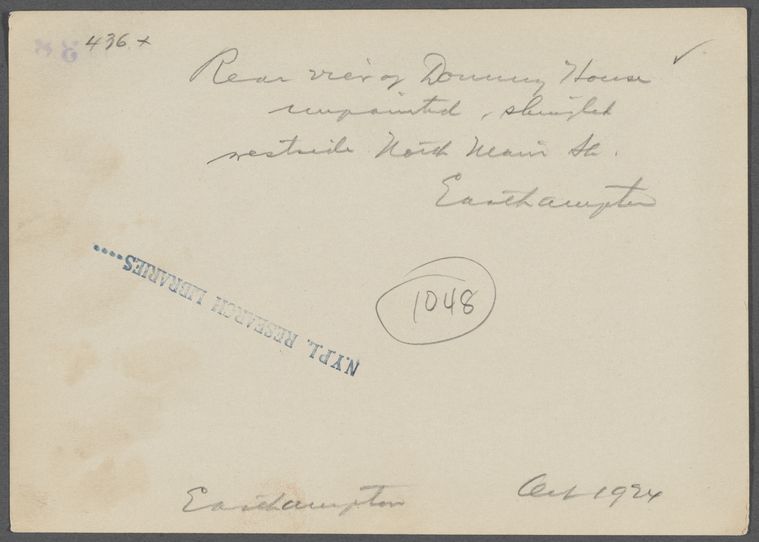 436 x
Rear view of Dominy House
unpainted, shingled
westside North Main St.
Easthampton
N.Y.P.L. RESEARCH LIBRARIES
1048
Easthampton Oct 1924